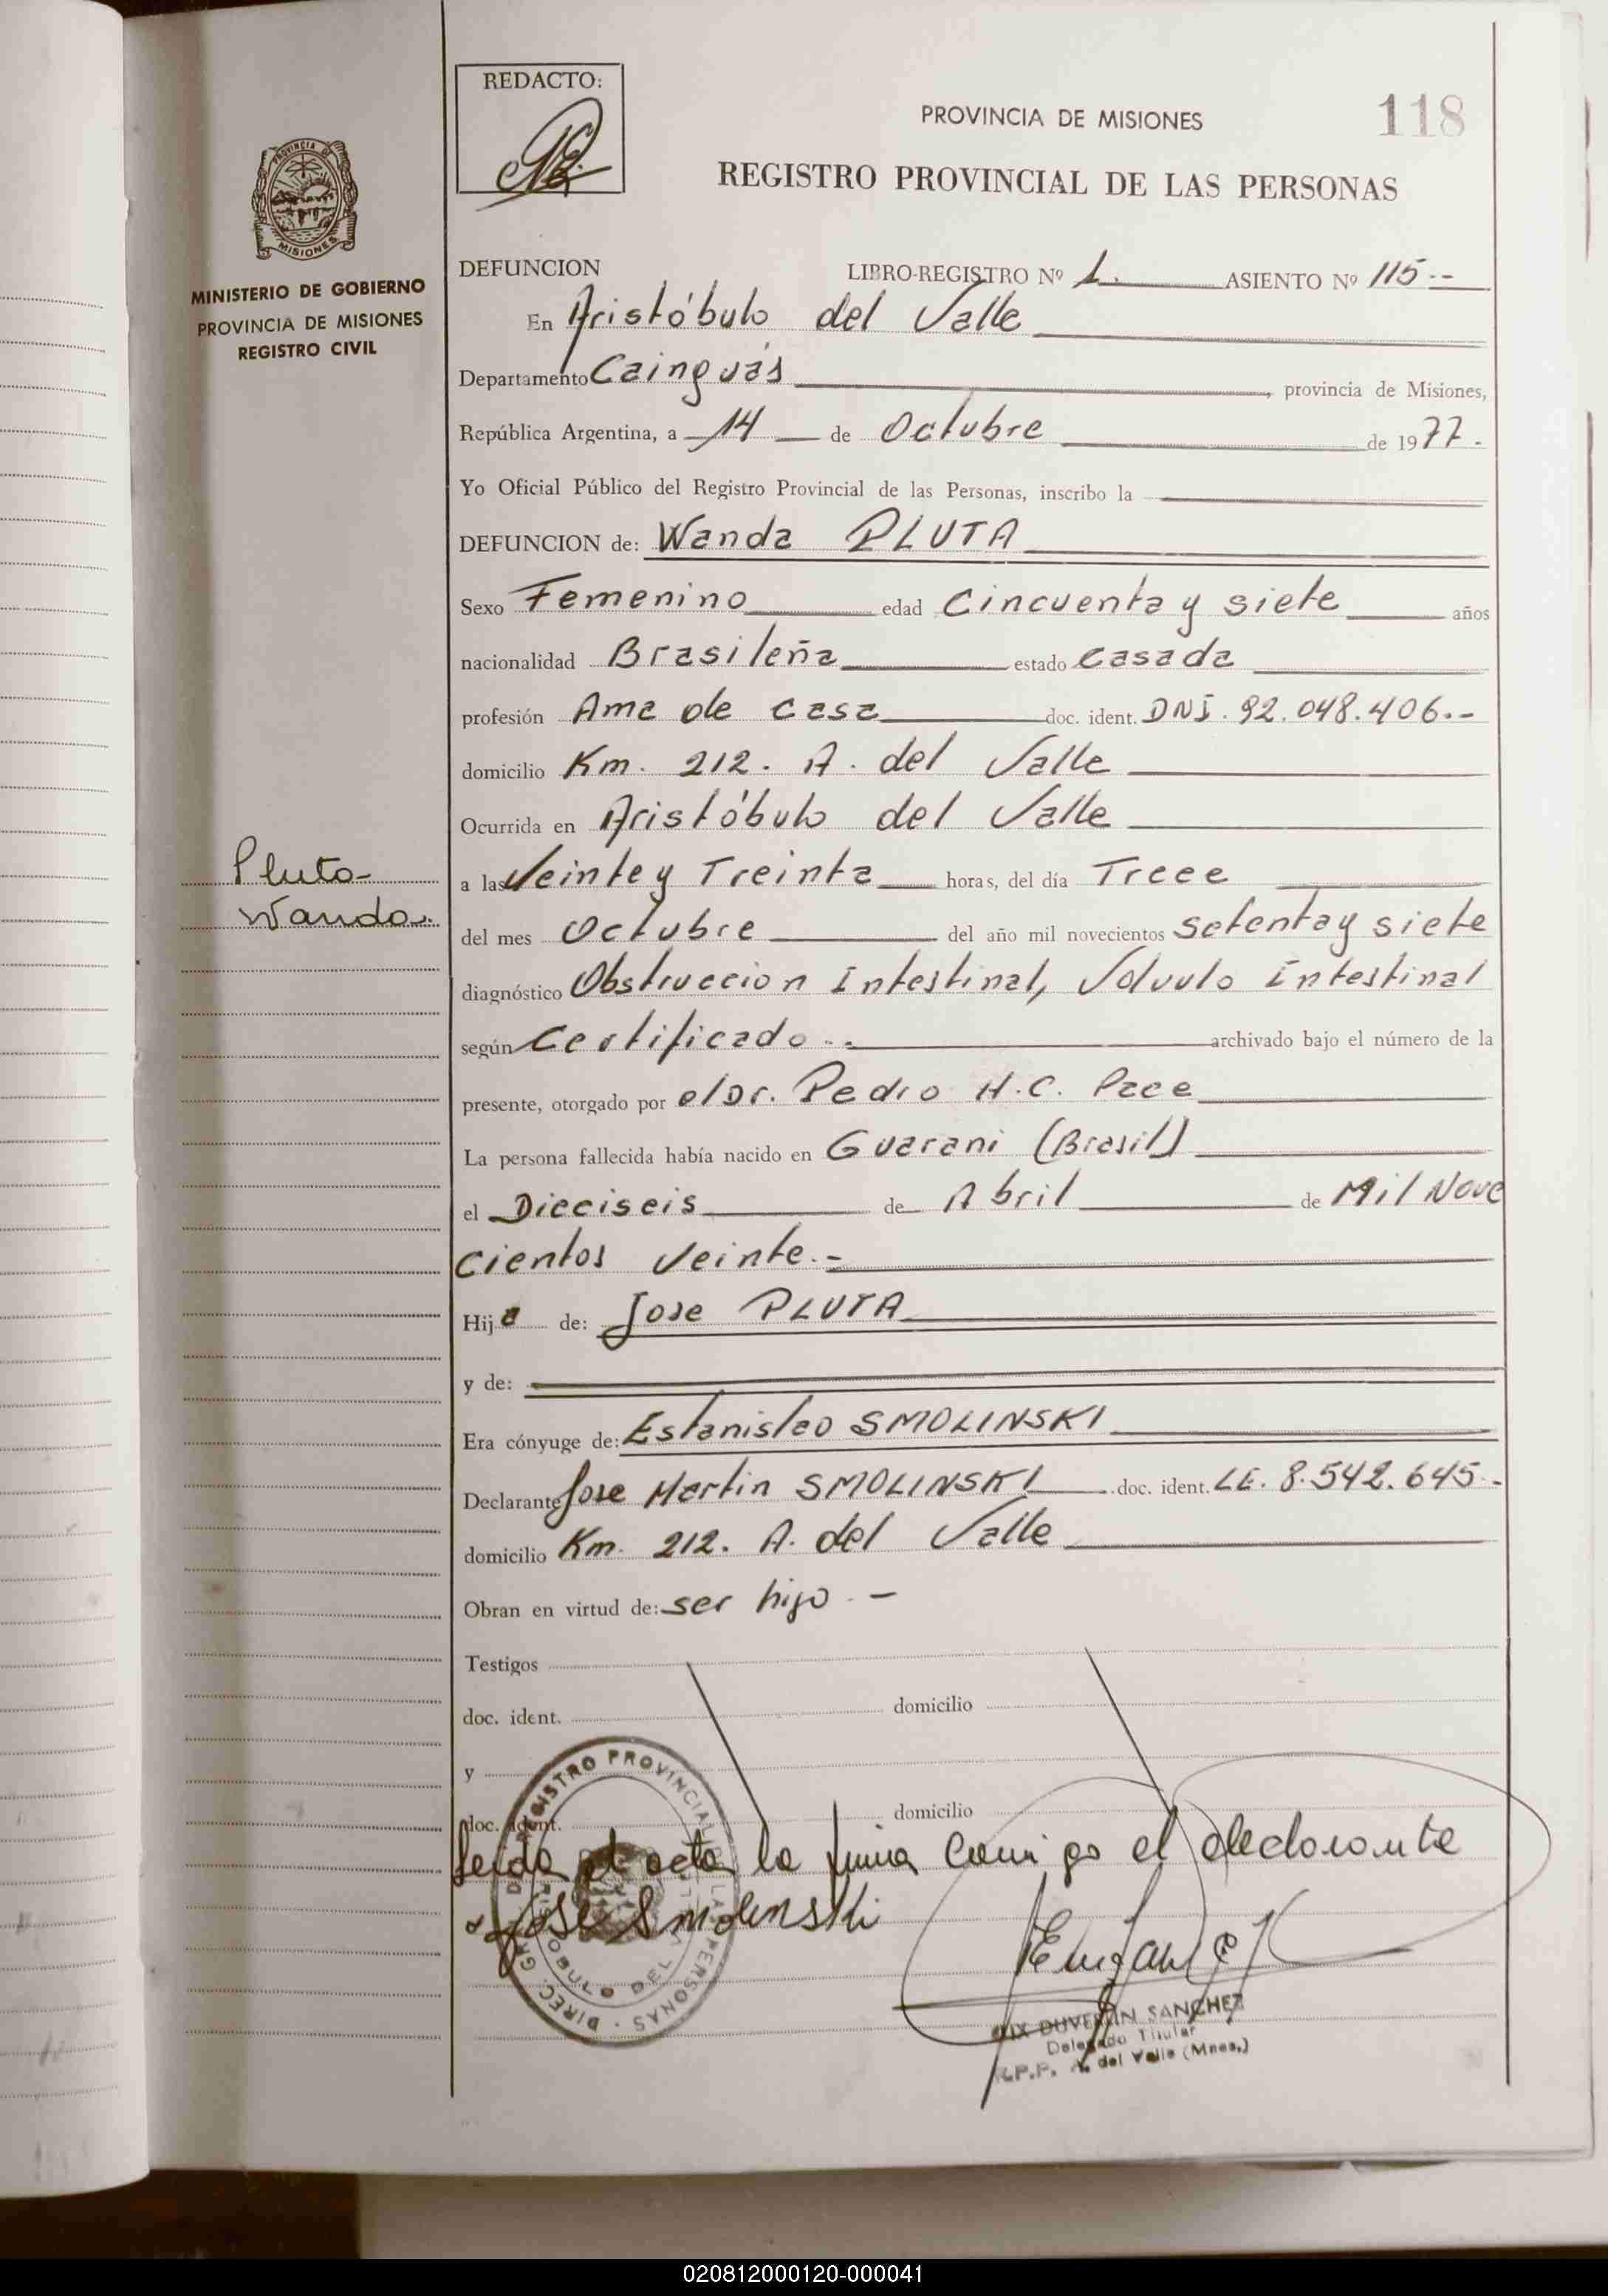 REDACTO:
PROVINCIA DE MISIONES
118
REGISTRO PROVINCIAL DE LAS PERSONAS
PROVINCIA DE
MISIONES
MINISTERIO DE GOBIERNO
PROVINCIA DE MISIONES
REGISTRO CIVIL
DEFUNCION LIBRO-REGISTRO Nº 1. ASIENTO Nº 115.-
En Aristóbulo del Valle
Departamento Cainguás, provincia de Misiones,
República Argentina, a 14 de Octubre de 1977.
Yo Oficial Público del Registro Provincial de las Personas, inscribo la
DEFUNCION de: Wanda PLUTA
Sexo Femenino edad Cincuenta y siete años
nacionalidad Brasileña estado Casada
profesión Ama de casa doc. ident. DNI. 92.048.406.-
domicilio Km. 212. A. del Valle
Ocurrida en Aristóbulo del Valle
Pluta
Wanda.
a las Veinte y Treinta horas, del día Trece
del mes Octubre del año mil novecientos setenta y siete
diagnóstico Obstruccion Intestinal, Volvulo intestinal
según Certificado.. archivado bajo el número de la
presente, otorgado por el Dr. Pedro H.C. Pace
La persona fallecida había nacido en Guarani (Brasil)
el Dieciseis de Abril de Mil Nove
cientos veinte.-
Hija de: Jose PLUTA
y de:
Era cónyuge de: Estanislao SMOLINSKI
Declarante Jose Martin SMOLINSKI doc. ident. LE. 8.542.645.-
domicilio Km. 212. A. del Valle
Obran en virtud de: ser hijo.-
Testigos
doc. ident. domicilio
y
doc. ident. domicilio
leida el acta la firma conmigo el declarante
Jose Smolinski
DIREC. GRAL. DEL REGISTRO PROVINCIAL DE LAS PERSONAS
ARISTOBULO DEL VALLE
SANCHEZ
Delegado Titular
R.P.P. A. del Valle (Mnes.)
020812000120-000041